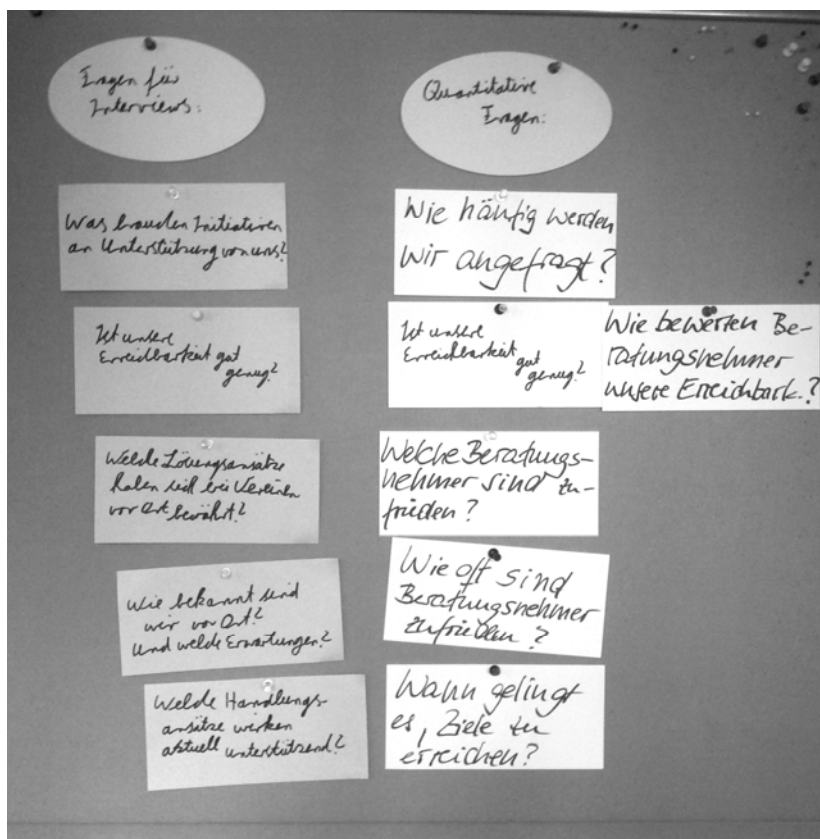 Fragen für
Interviews:
Was brauchen Initiativen
an Unterstützung von uns?
Ist unsere
Erreichbarkeit gut
genug?
Welche Lösungsansätze
haben sich bei Vereinen
vor Ort bewährt?
Wie bekannt sind
wir vor Ort?
Und welche Erwartungen?
Welche Handlungs-
ansätze wirken
aktuell unterstützend?
Quantitative
Fragen:
Wie häufig werden
wir angefragt?
Ist unsere
Erreichbarkeit gut
genug?
Wie bewerten Be-
ratungsnehmer
unsere Erreichbark.?
Welche Beratungs-
nehmer sind zu-
frieden?
Wie oft sind
Beratungsnehmer
zufrieden?
Wann gelingt
es, Ziele zu
erreichen?